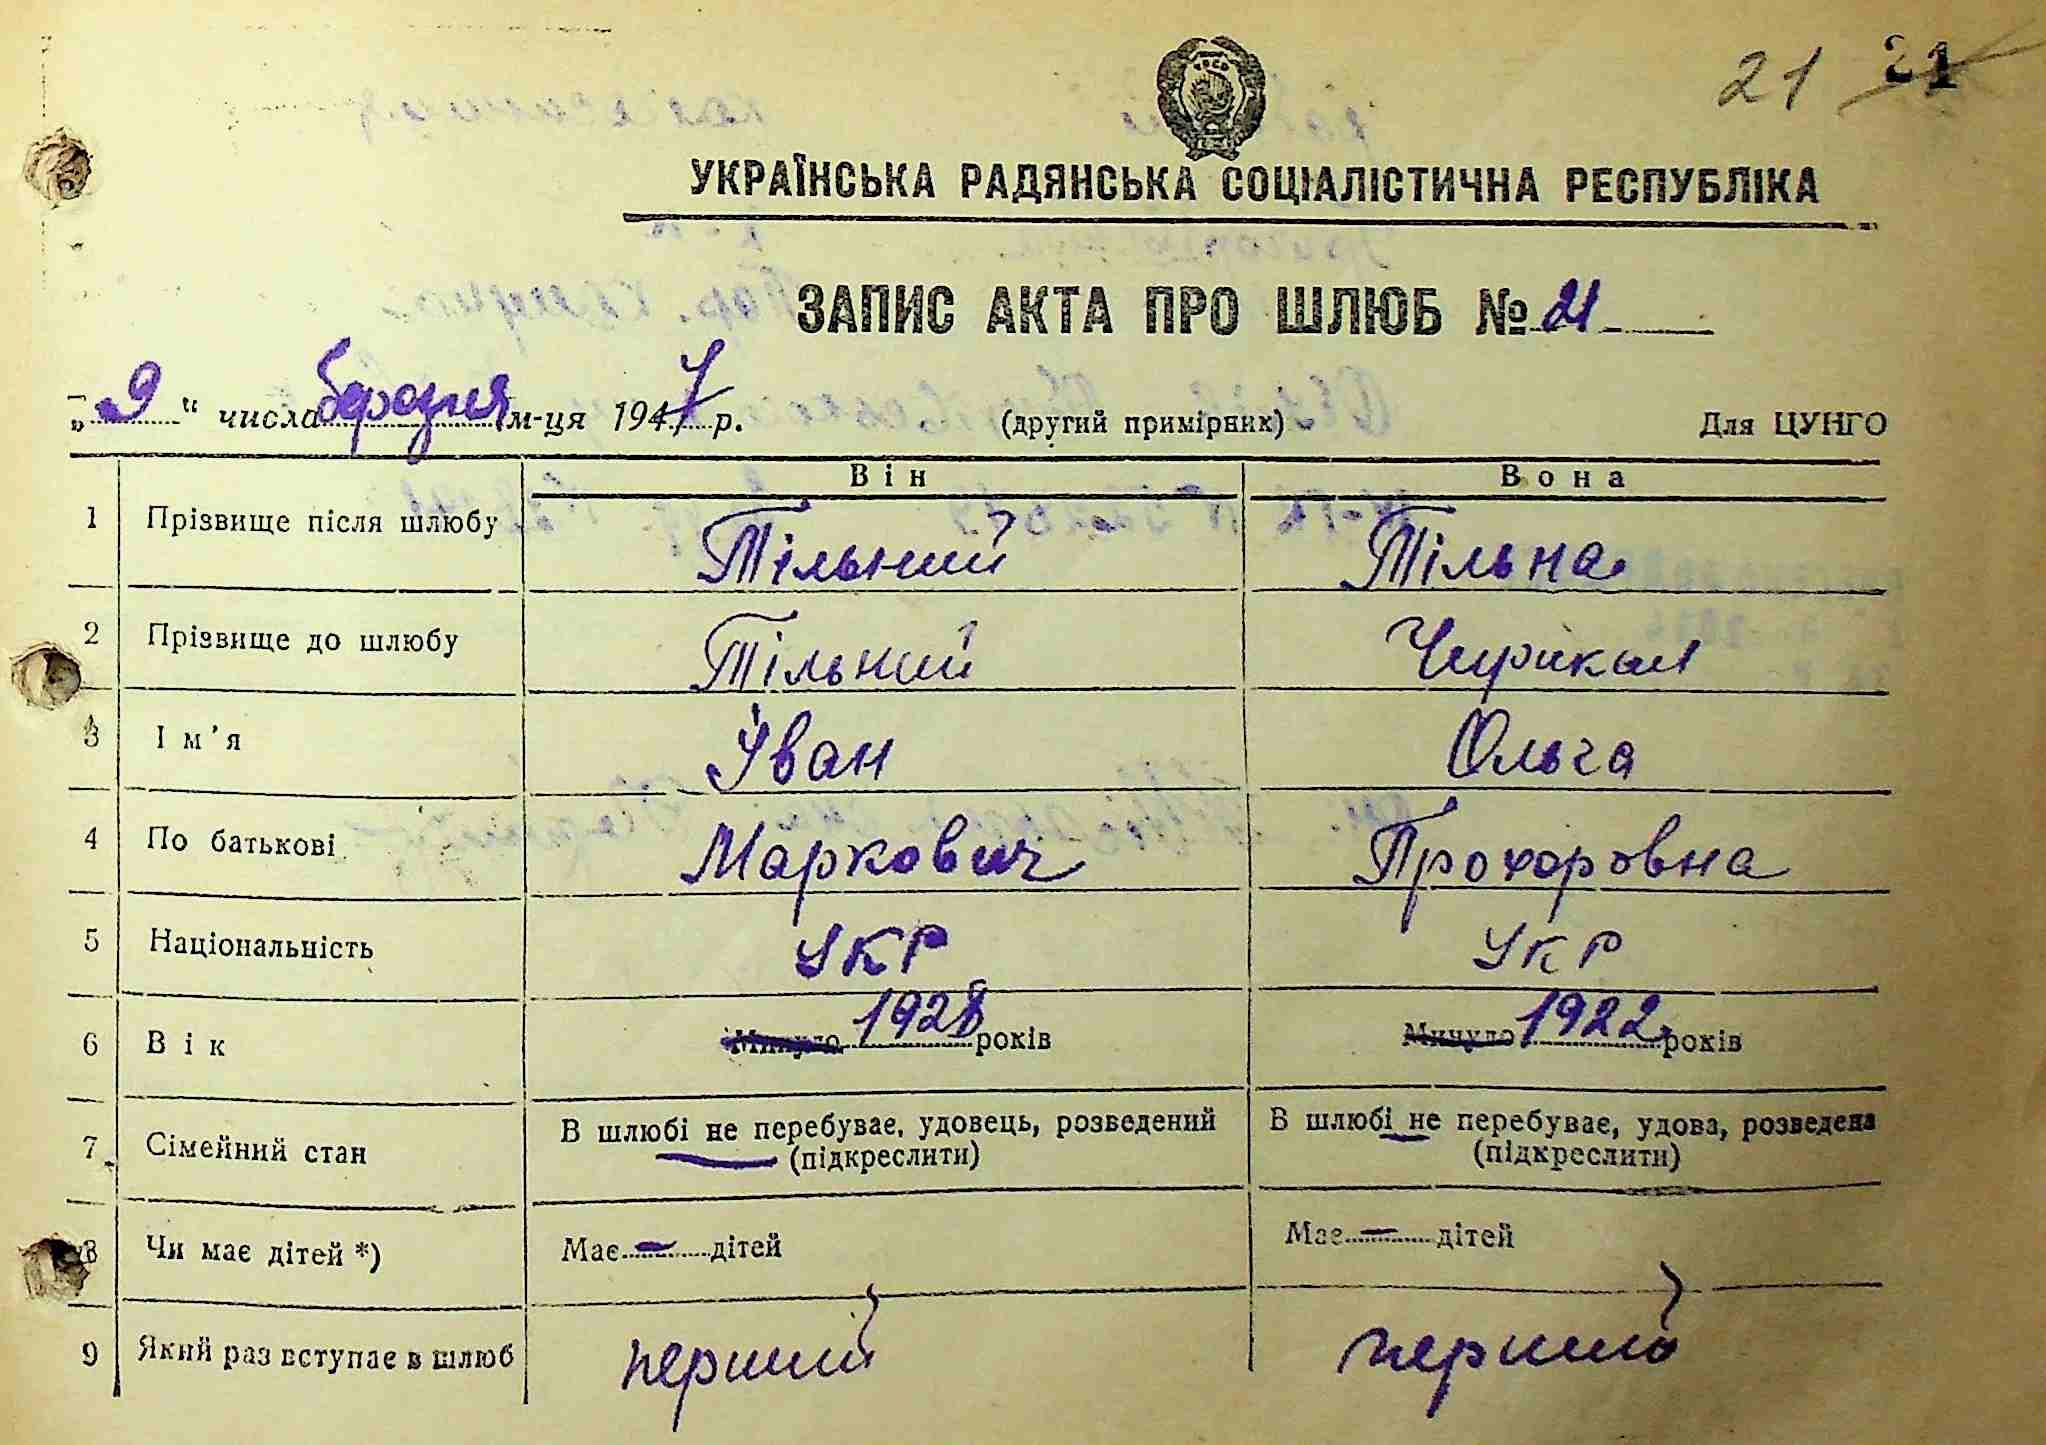 21 21
УКРАЇНСЬКА РАДЯНСЬКА СОЦІАЛІСТИЧНА РЕСПУБЛІКА
ЗАПИС АКТА ПРО ШЛЮБ № 21
„9“ числа березня м-ця 1947 р. (другий примірник) Для ЦУНГО
Він Вона
1 Прізвище після шлюбу Тільний Тільна
2 Прізвище до шлюбу Тільний
3 Ім'я Іван Ольга
4 По батькові Маркович Прохоровна
5 Національність УКР УКР
6 Вік Минуло 1928 років Минуло 1922 років
7 Сімейний стан В шлюбі не перебуває, удовець, розведений В шлюбі не перебуває, удова, розведена
(підкреслити) (підкреслити)
8 Чи має дітей *) Має — дітей Має — дітей
9 Який раз вступає в шлюб перший перший